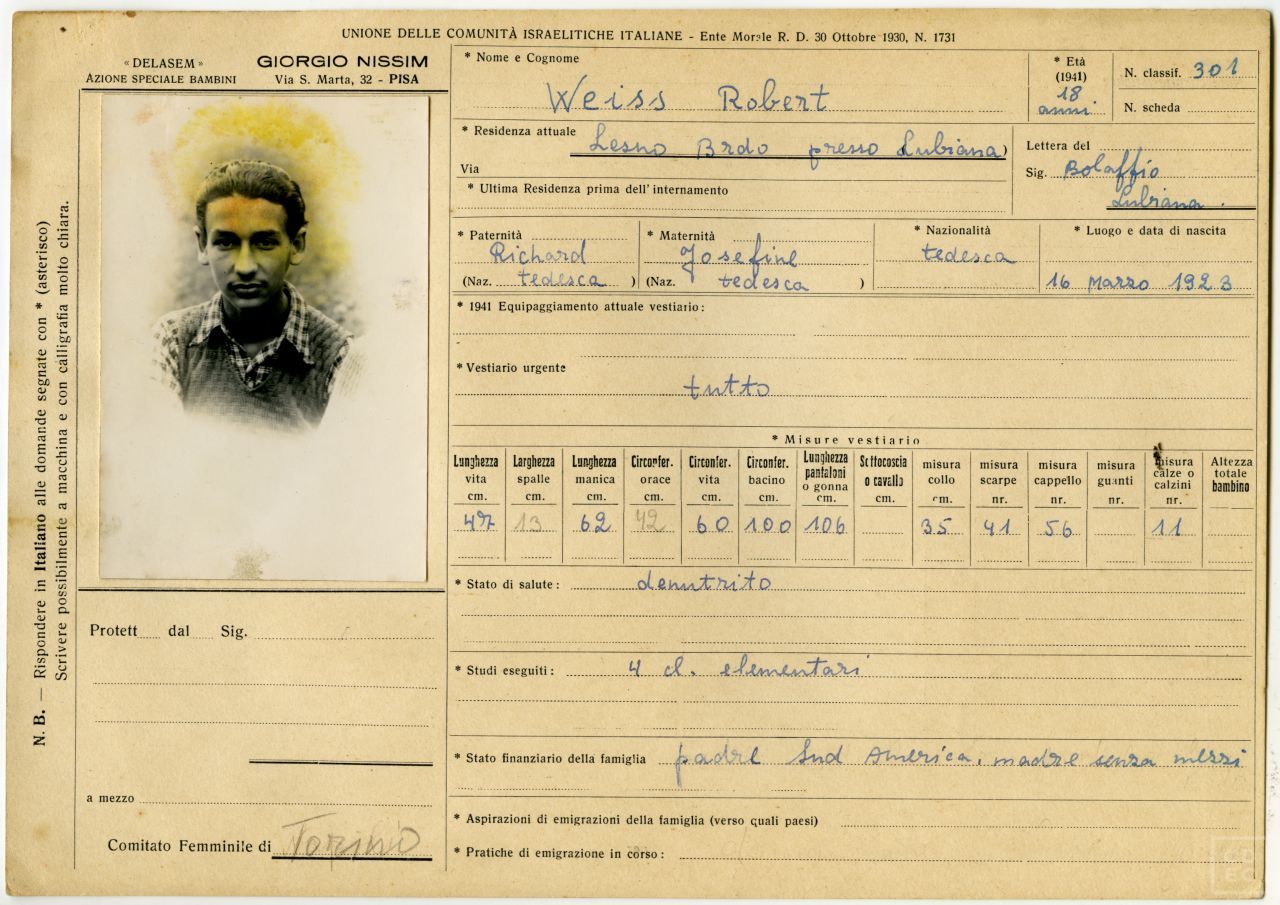 UNIONE DELLE COMUNITÀ ISRAELITICHE ITALIANE - Ente Morale R. D. 30 Ottobre 1930, N. 1731
« DELASEM »
AZIONE SPECIALE BAMBINI
GIORGIO NISSIM
Via S. Marta, 32 - PISA
N. B. — Rispondere in Italiano alle domande segnate con * (asterisco)
Scrivere possibilmente a macchina e con calligrafia molto chiara.
* Nome e Cognome
Weiss Robert
* Età
(1941)
18
anni
N. classif. 301
N. scheda
* Residenza attuale Lesno Brdo presso Lubiana)
Via
* Ultima Residenza prima dell'internamento
Lettera del
Sig. Bolaffio
Lubiana.
* Paternità
Richard
(Naz. tedesca )
* Maternità
Josefine
(Naz. tedesca )
* Nazionalità
tedesca
* Luogo e data di nascita
16 Marzo 1923
* 1941 Equipaggiamento attuale vestiario:
* Vestiario urgente
tutto
* Misure vestiario
Lunghezza vita cm. 47
Larghezza spalle cm. 13
Lunghezza manica cm. 62
Circonfer. orace cm. 42
Circonfer. vita cm. 60
Circonfer. bacino cm. 100
Lunghezza pantaloni o gonna cm. 106
Sottocoscia o cavallo cm.
misura collo cm. 35
misura scarpe nr. 41
misura cappello nr. 56
misura guanti nr.
misura calze o calzini nr. 11
Altezza totale bambino
* Stato di salute: denutrito
* Studi eseguiti: 4 cl. elementari
* Stato finanziario della famiglia padre Sud America, madre senza mezzi
* Aspirazioni di emigrazioni della famiglia (verso quali paesi)
* Pratiche di emigrazione in corso:
Protett dal Sig.
a mezzo
Comitato Femminile di Torino
CDEC